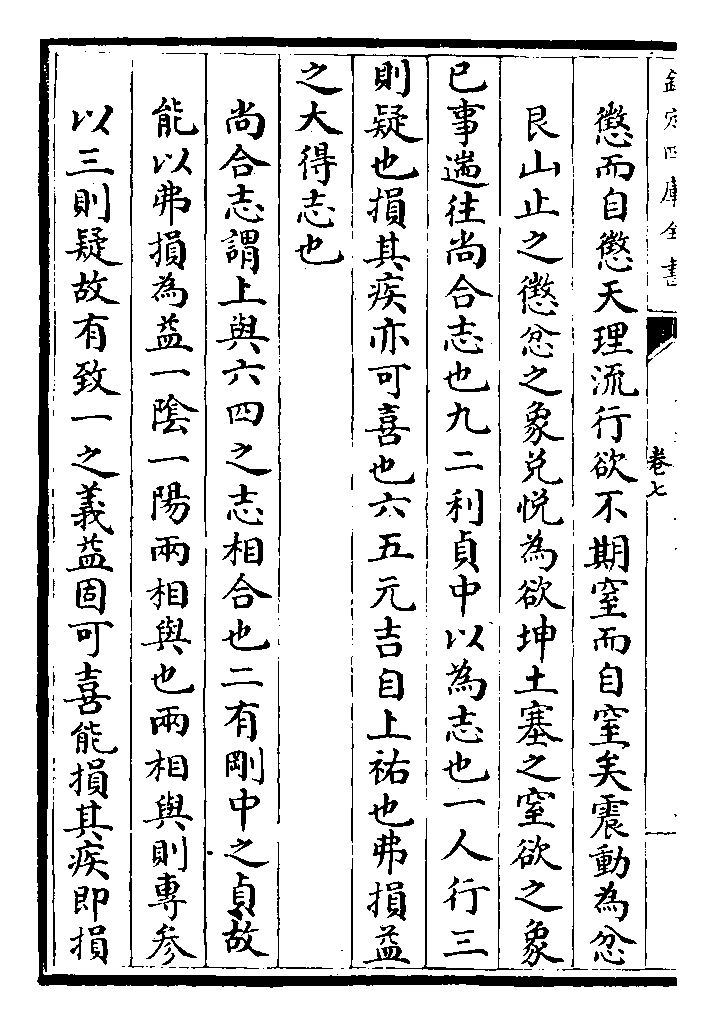 欽定四庫全書
卷七
懲而自懲天理流行欲不期窒而自窒矣震動為忿
艮山止之懲忿之象兌悅為欲坤土塞之窒欲之象
已事遄往尚合志也九二利貞中以為志也一人行三
則疑也損其疾亦可喜也六五元吉自上祐也弗損益
之大得志也
尚合志謂上與六四之志相合也二有剛中之貞故
能以弗損為益一陰一陽兩相與也兩相與則專參
以三則疑故有致一之義益固可喜能損其疾即損